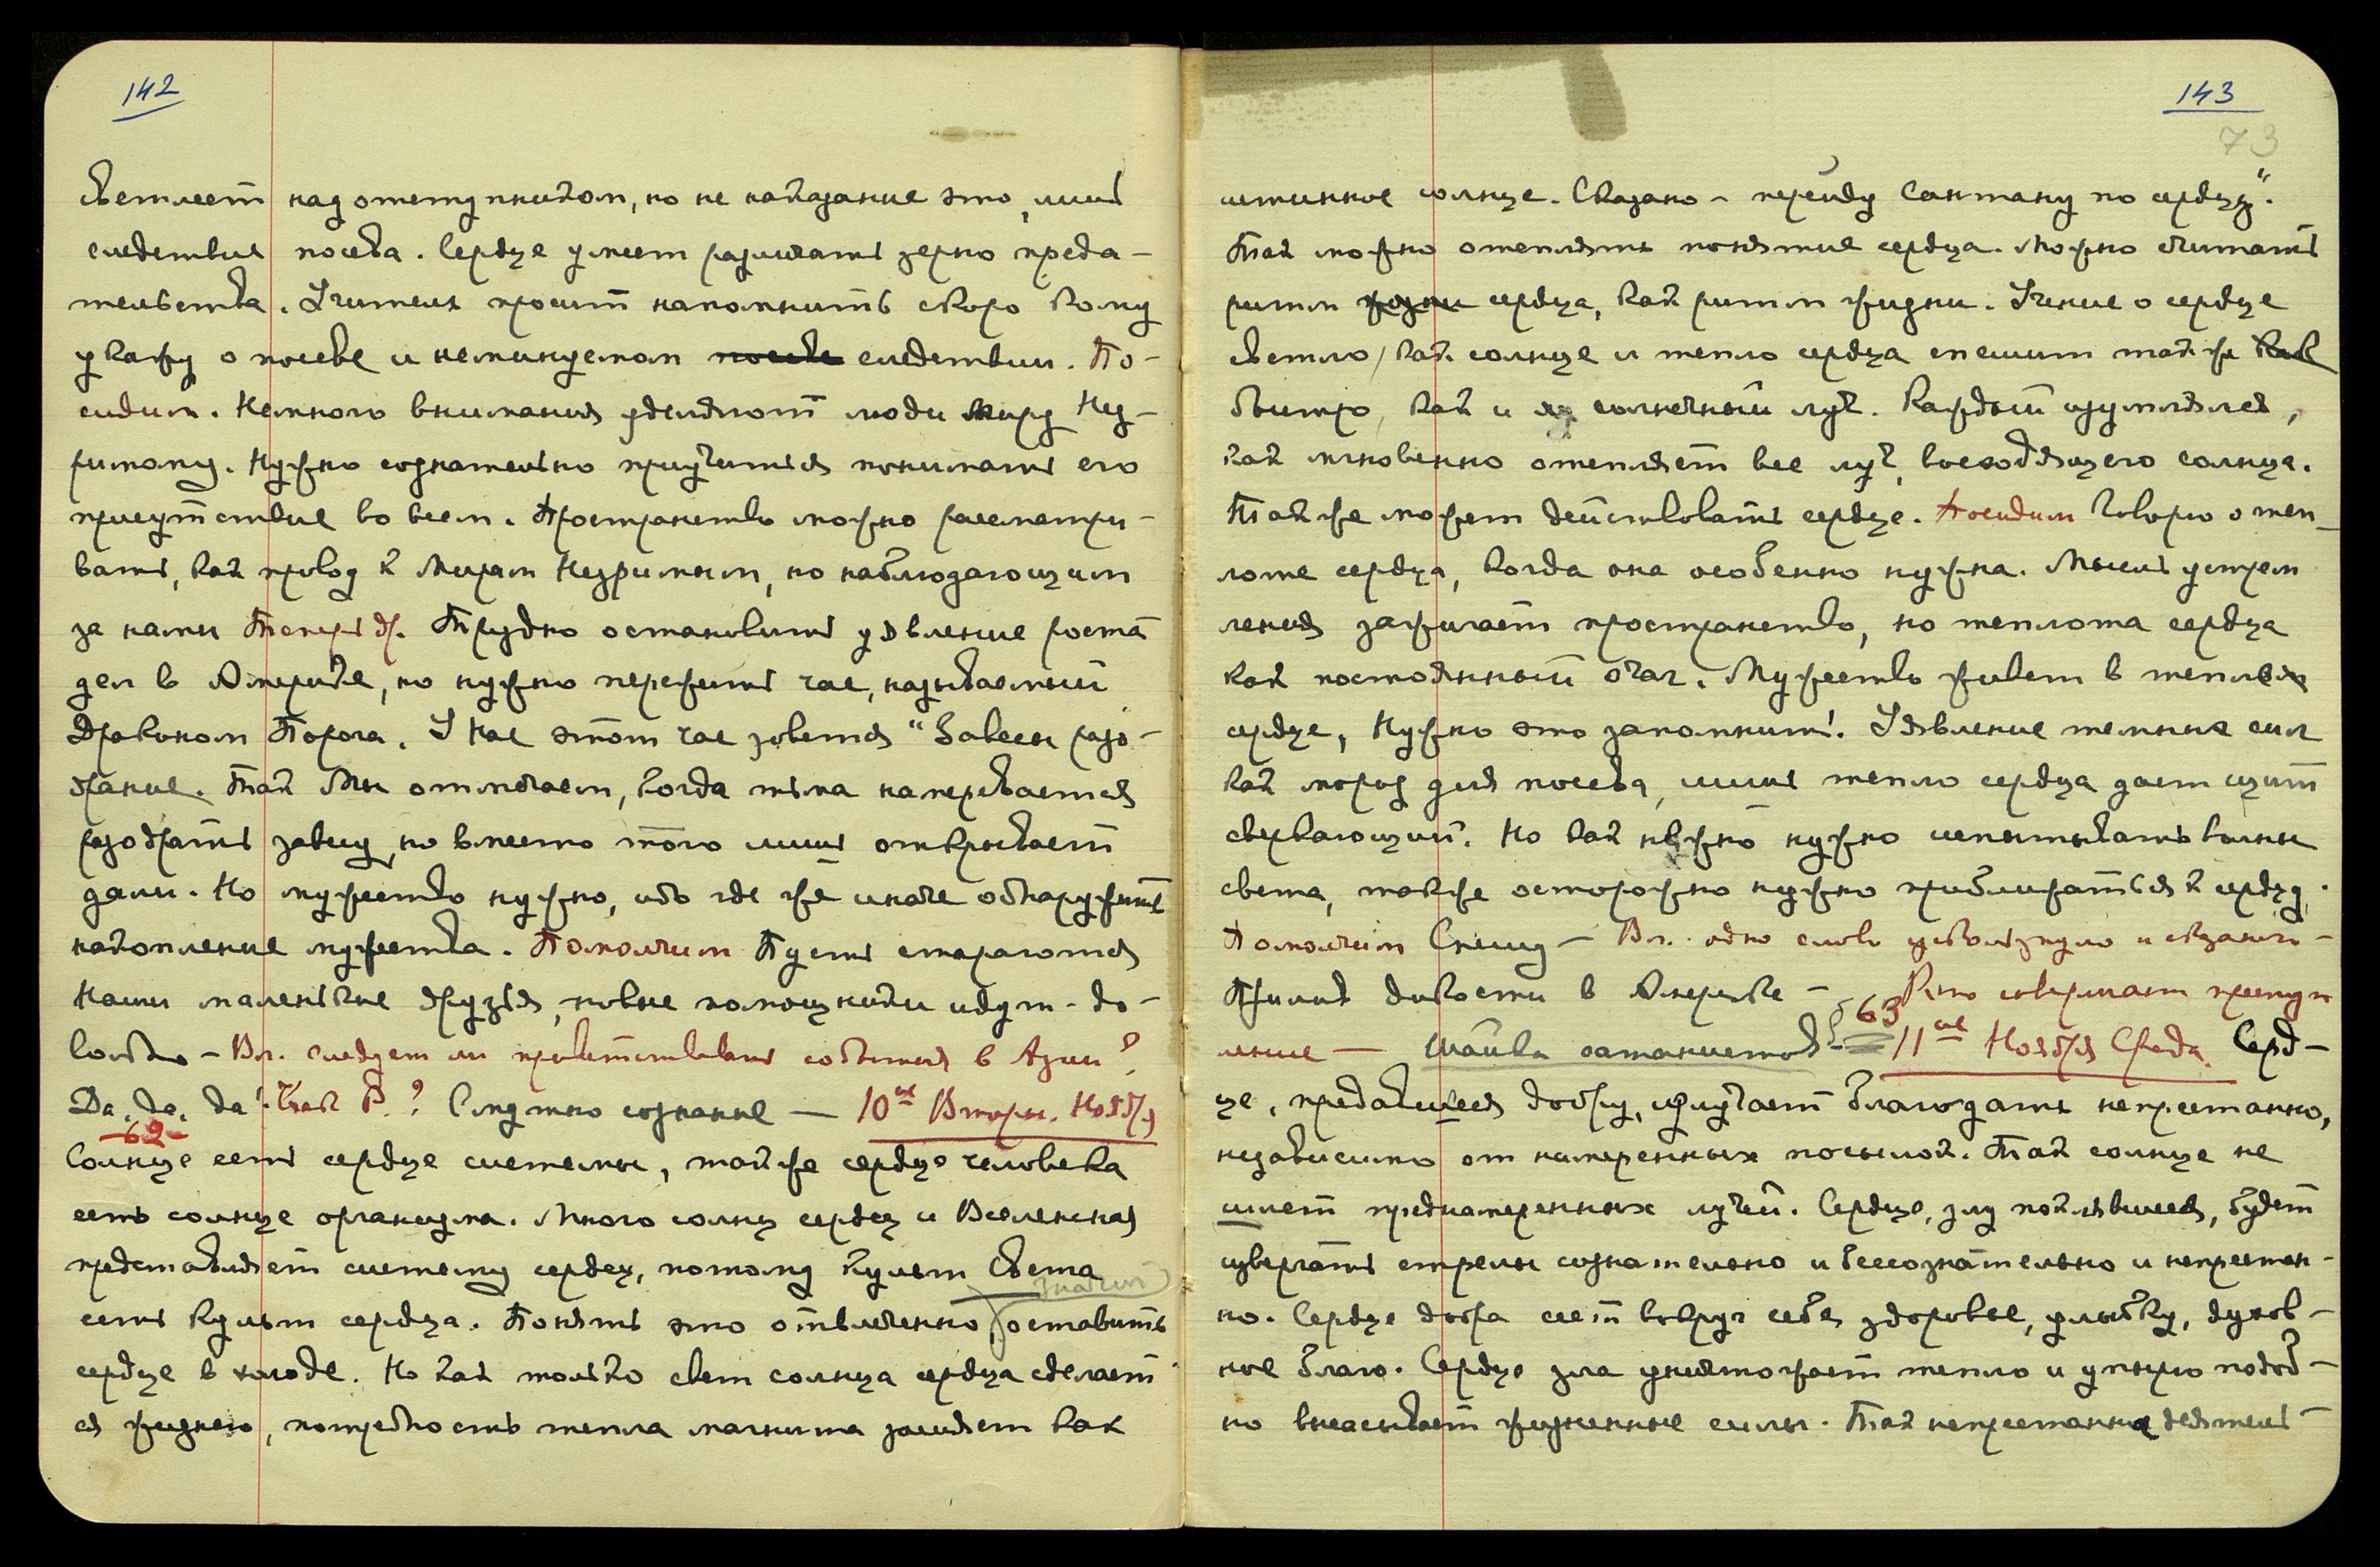 142
светлеет над отступником, но не наказание это, лишь
следствия посева. Сердце умеет различать зерно преда-
тельства. Учитель просит напомнить скоро кому
укажу о посеве и неминуемом посеве следствии. По-
сидим. Немного внимания уделяют люди Миру Нез-
римому. Нужно сознательно приучиться понимать его
присутствие во всем. Пространство можно рассматри-
вать, как провод к Мирам Незримым, но наблюдающим
за нами Теперь др. Трудно остановить уявление роста
дел в Америке, но нужно пережить час, называемый
Драконом Порога. У Нас этот час зовется "Завесы разо-
драние. Так Мы отмечаем, когда тьма намеревается
разодрать завесу, но вместо того лишь открывает
дали. Но мужество нужно, ибо где же иначе обнаружить
накопление мужества. Помолчим Пусть стараются
Наши маленькие друзья, новые помощники идут - до-
вольно - Вл. следует ли приветствовать события в Азии?
Да, да, да! Как Р.? Смутно сознание — 10ое Вторн. Ноября
62
Солнце есть сердце системы, также сердце человека
есть солнце организма. Много солнц сердец и Вселенная
представляет систему сердец, потому культ Света
значит
есть культ сердца. Понять это отвлеченно, оставить
сердце в холоде. Но как только свет солнца сердца сделает-
ся жизнью, потребность тепла магнита засияет как
143
73
истинное солнце. Сказано - перейду Сантану по сердцу".
Так можно отеплять понятие сердца. Можно считать
ритм жизни сердца, как ритм жизни. Учение о сердце
светло, как солнце и тепло сердца спешит так же как
быстро, как и солнечный луч. Каждый изумлялся,
как мгновенно отепляет все луч восходящего солнца.
Так же может действовать сердце. Посидим Говорю о теп-
лоте сердца, когда она особенно нужна. Мысль устрем
ления зажигает пространство, но теплота сердца
как постоянный очаг. Мужество живет в теплом
сердце, Нужно это запомнить. Уявление темных сил
как мороз для посева, лишь тепло сердца дает щит
сверкающий. Но как нежно нужно испытывать волны
света, также осторожно нужно приближаться к сердцу.
Помолчим Спешу - Вл. одно слово ускользнуло и связано -
Прилив дикости в Америке - Кто совершает преступ
ление — Шайка сатанистов § 63 11ое Ноября Среда. Серд-
це, предавшееся добру, излучает благодать непрестанно,
независимо от намеренных посылок. Так солнце не
шлет преднамеренных лучей. Сердце, злу поклявшееся, будет
извергать стрелы сознательно и бессознательно и непрестан-
но. Сердце добра сеет вокруг себя здоровье, улыбку, духов-
ное благо. Сердце зла уничтожает тепло и упырю подоб-
но высасывает жизненные силы. Так непрестанна деятель-